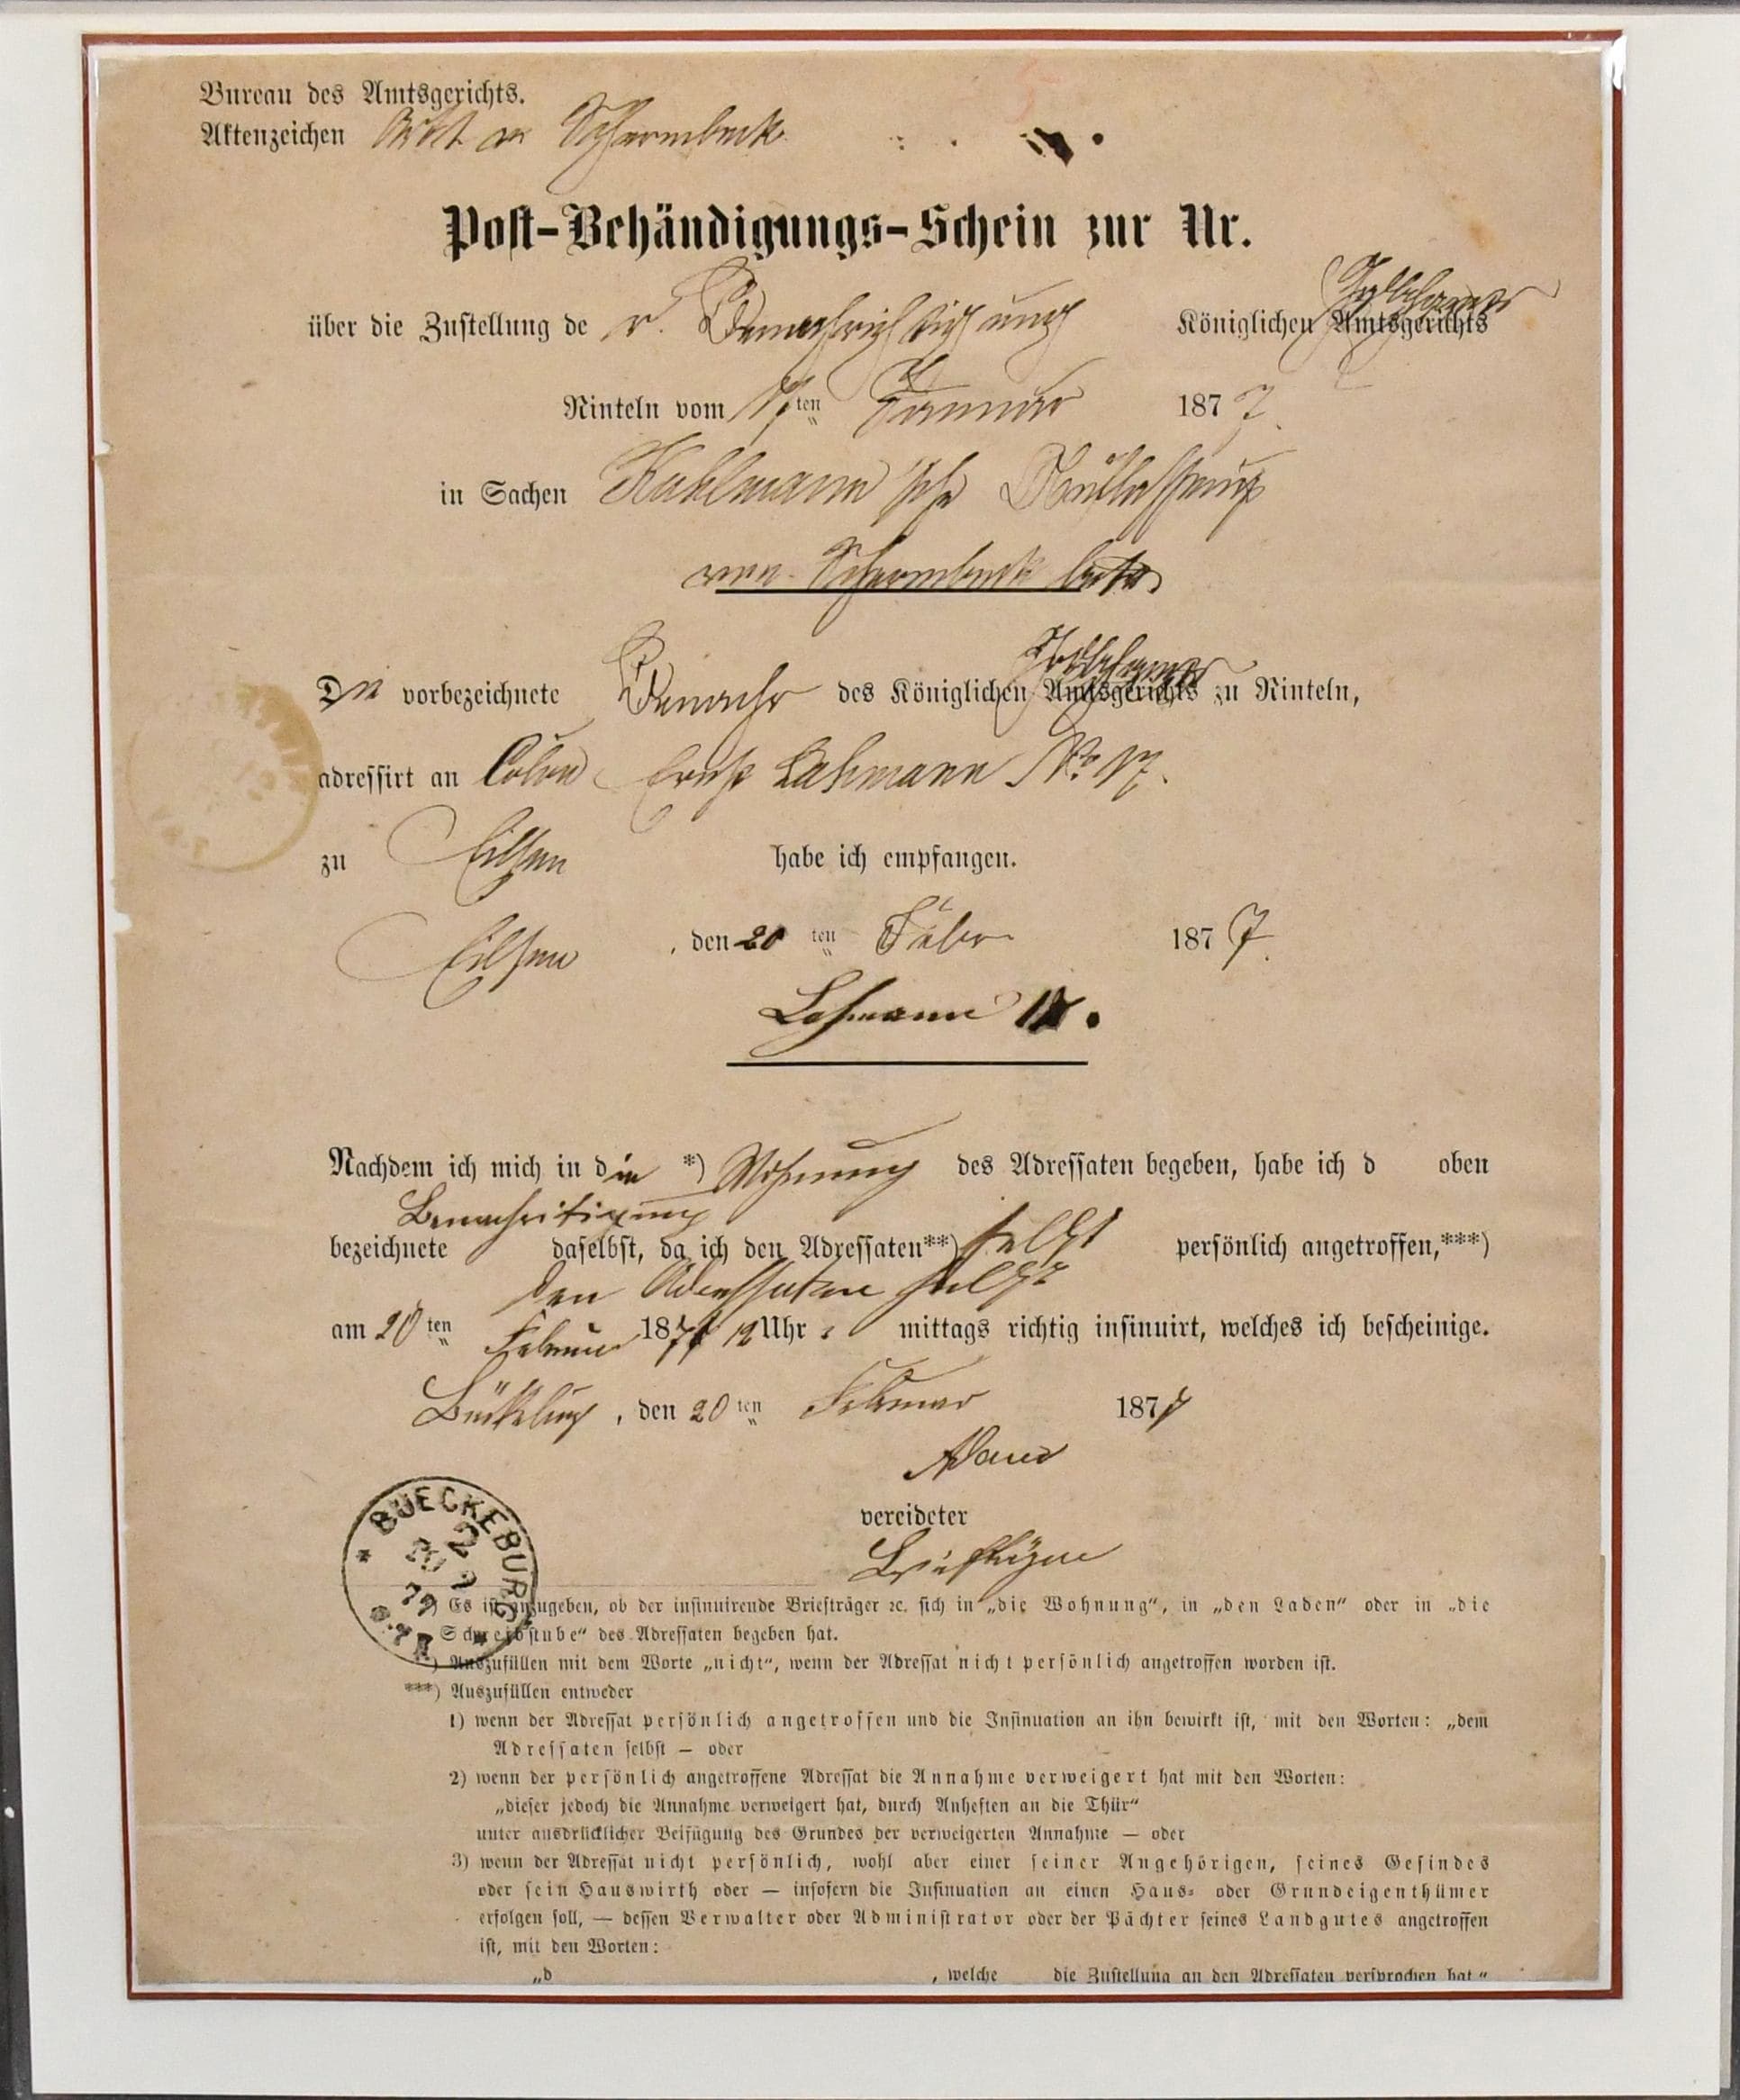 Bureau des Amtsgerichts.
Aktenzeichen
Post-Behändigungs-Schein zur Nr.
über die Zustellung de r. Benachrichtigung Königlichen Amtsgerichts
Rinteln vom 17ten Januar 1877.
in Sachen
von
Die vorbezeichnete Benachr des Königlichen Amtsgerichts zu Rinteln,
adressirt an Colon Ernst Lahmann No 17.
zu Eilsen habe ich empfangen.
Eilsen, den 20ten Febr 1877.
Lahmann 17.
Nachdem ich mich in die *) Wohnung des Adressaten begeben, habe ich d oben
Benachritigung
bezeichnete daselbst, da ich den Adressaten**) selbst persönlich angetroffen,***)
den Adressaten selbst
am 20ten Februar 1877 12 Uhr mittags richtig insinuirt, welches ich bescheinige.
Bückeburg, den 20ten Februar 1877
vereideter
Briefträger
BUECKEBURG
*) Es ist anzugeben, ob der insinuirende Briefträger ꝛc. sich in „die Wohnung“, in „den Laden“ oder in „die
Schreibstube“ des Adressaten begeben hat.
**) Auszufüllen mit dem Worte „nicht“, wenn der Adressat nicht persönlich angetroffen worden ist.
***) Auszufüllen entweder
1) wenn der Adressat persönlich angetroffen und die Insinuation an ihn bewirkt ist, mit den Worten: „dem
Adressaten selbst — oder
2) wenn der persönlich angetroffene Adressat die Annahme verweigert hat mit den Worten:
„dieser jedoch die Annahme verweigert hat, durch Anheften an die Thür“
unter ausdrücklicher Beifügung des Grundes der verweigerten Annahme — oder
3) wenn der Adressat nicht persönlich, wohl aber einer seiner Angehörigen, seines Gesindes
oder sein Hauswirth oder — insofern die Insinuation an einen Haus- oder Grundeigenthümer
erfolgen soll, — dessen Verwalter oder Administrator oder der Pächter seines Landgutes angetroffen
ist, mit den Worten:
„d , welche die Zustellung an den Adressaten versprochen hat“